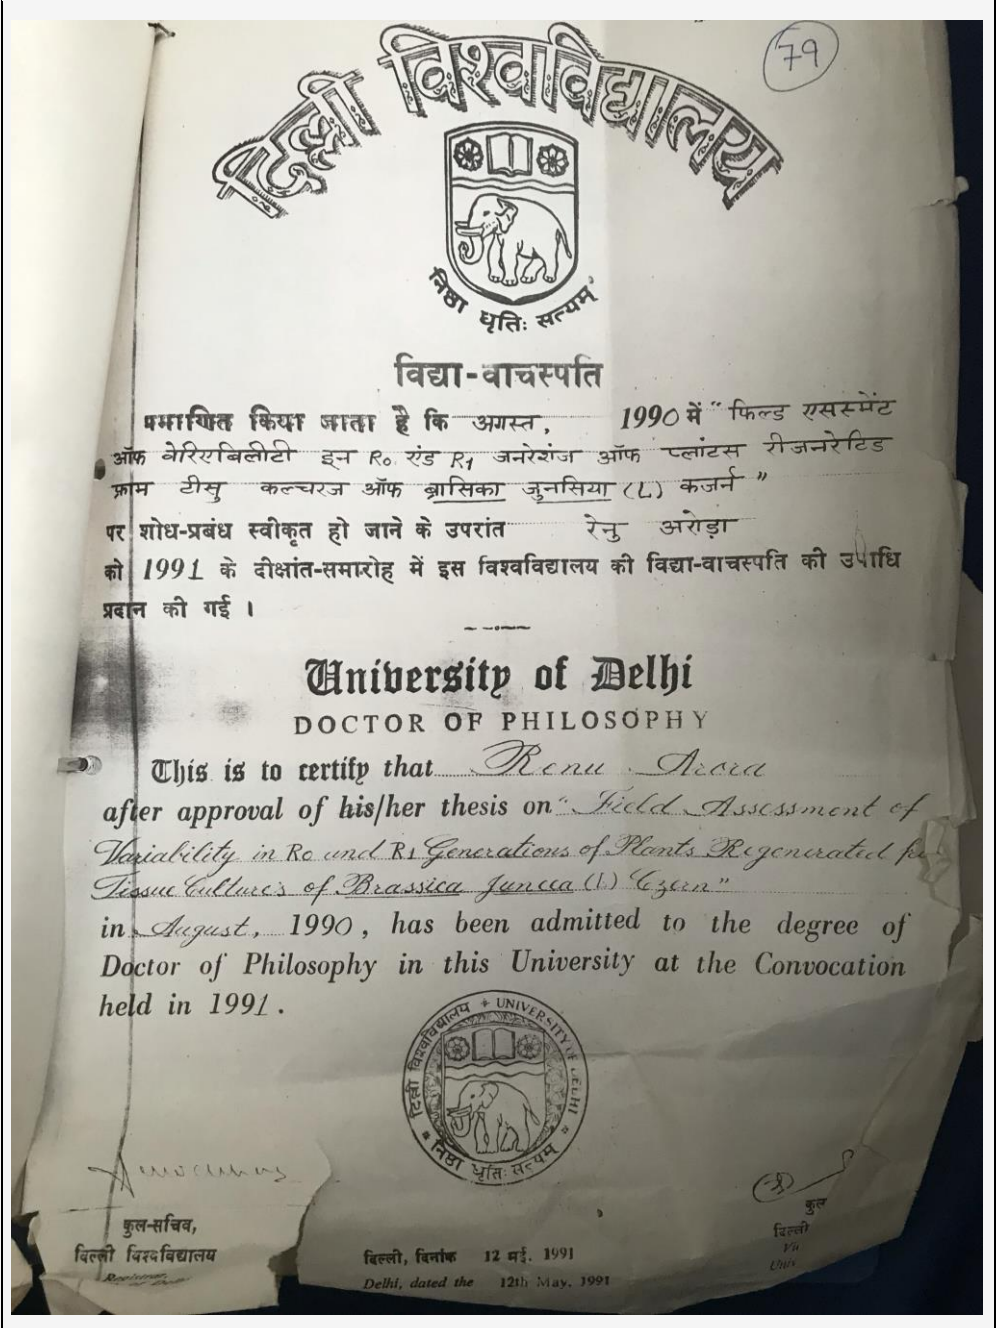 79
दिल्ली विश्वविद्यालय
निष्ठा धृतिः सत्यम्
विद्या-वाचस्पति
प्रमाणित किया जाता है कि अगस्त, 1990 में "फिल्ड एसस्मेंट
ऑफ वेरिएबिलीटी इन R0 एंड R1 जनरेशंज ऑफ प्लांटस रीजनरेटिड
फ्राम टीसु कल्चरज ऑफ ब्रासिका जुनसिया (L) कजर्न"
पर शोध-प्रबंध स्वीकृत हो जाने के उपरांत रेनु अरोड़ा
को 1991 के दीक्षांत-समारोह में इस विश्वविद्यालय की विद्या-वाचस्पति की उपाधि
प्रदान की गई ।
University of Delhi
DOCTOR OF PHILOSOPHY
This is to certify that Renu Arora
after approval of his/her thesis on "Field Assessment of
Variability in R0 and R1 Generations of Plants Regenerated
Tissue Cultures of Brassica Juncea (L) Czern"
in August, 1990, has been admitted to the degree of
Doctor of Philosophy in this University at the Convocation
held in 1991.
दिल्ली विश्वविद्यालय + UNIVERSITY OF DELHI
निष्ठा धृतिः सत्यम्
कुल-सचिव,
दिल्ली विश्वविद्यालय
Registrar,
कुल
दिल्ली
Univ
दिल्ली, दिनांक 12 मई, 1991
Delhi, dated the 12th May, 1991